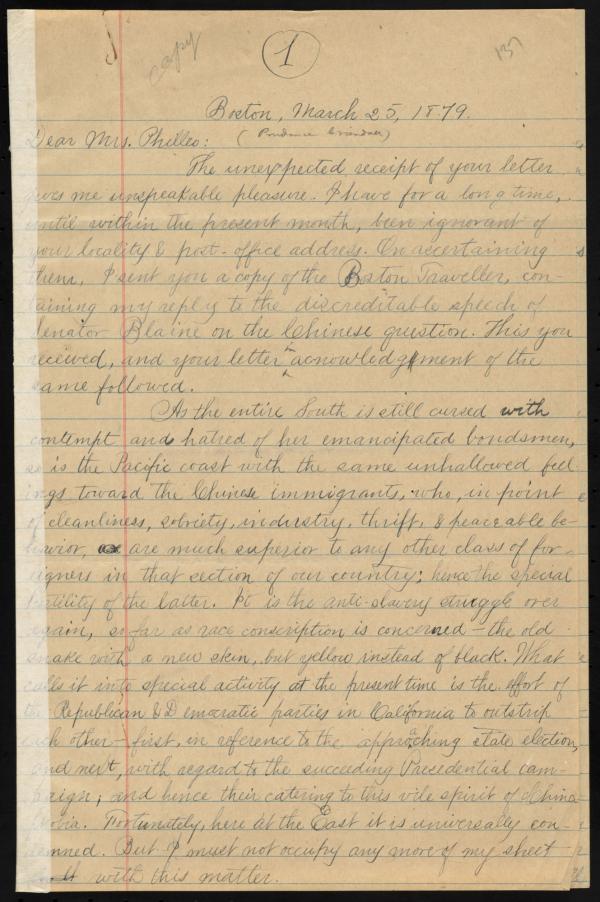 copy
1
137
Boston, March 25, 1879.
Dear Mrs. Philleo:
( Prudence Crandall )
The unexpected receipt of your letter
gives me unspeakable pleasure. I have for a long time,
until within the present month, been ignorant of
your locality & post-office address. On ascertaining
them, I sent you a copy of the Boston Traveller, con-
taining my reply to the discreditable speech of
Senator Blaine on the Chinese question. This you
received, and your letter acnowledgment of the
same followed.
As the entire South is still cursed with
contempt and hatred of her emancipated bondsmen,
so is the Pacific coast with the same unhallowed feel-
ings toward the Chinese immigrants, who, in point
of cleanliness, sobriety, industry, thrift, & peaceable be-
havior, are much superior to any other class of for-
eigners in that section of our country; hence the special
hostility of the latter. It is the anti-slavery struggle over
again, so far as race conscription is concerned – the old
snake with a new skin, but yellow instead of black. What
calls it into special activity at the present time is the effort of
the Republican & Democratic parties in California to outstrip
each other – first, in reference to the approaching state election,
and next, with regard to the succeeding Presedential cam-
paign; and hence their catering to this vile spirit of China-
phobia. Fortunately, here at the East it is universally con-
demned. But I must not occupy any more of my sheet
with this matter.